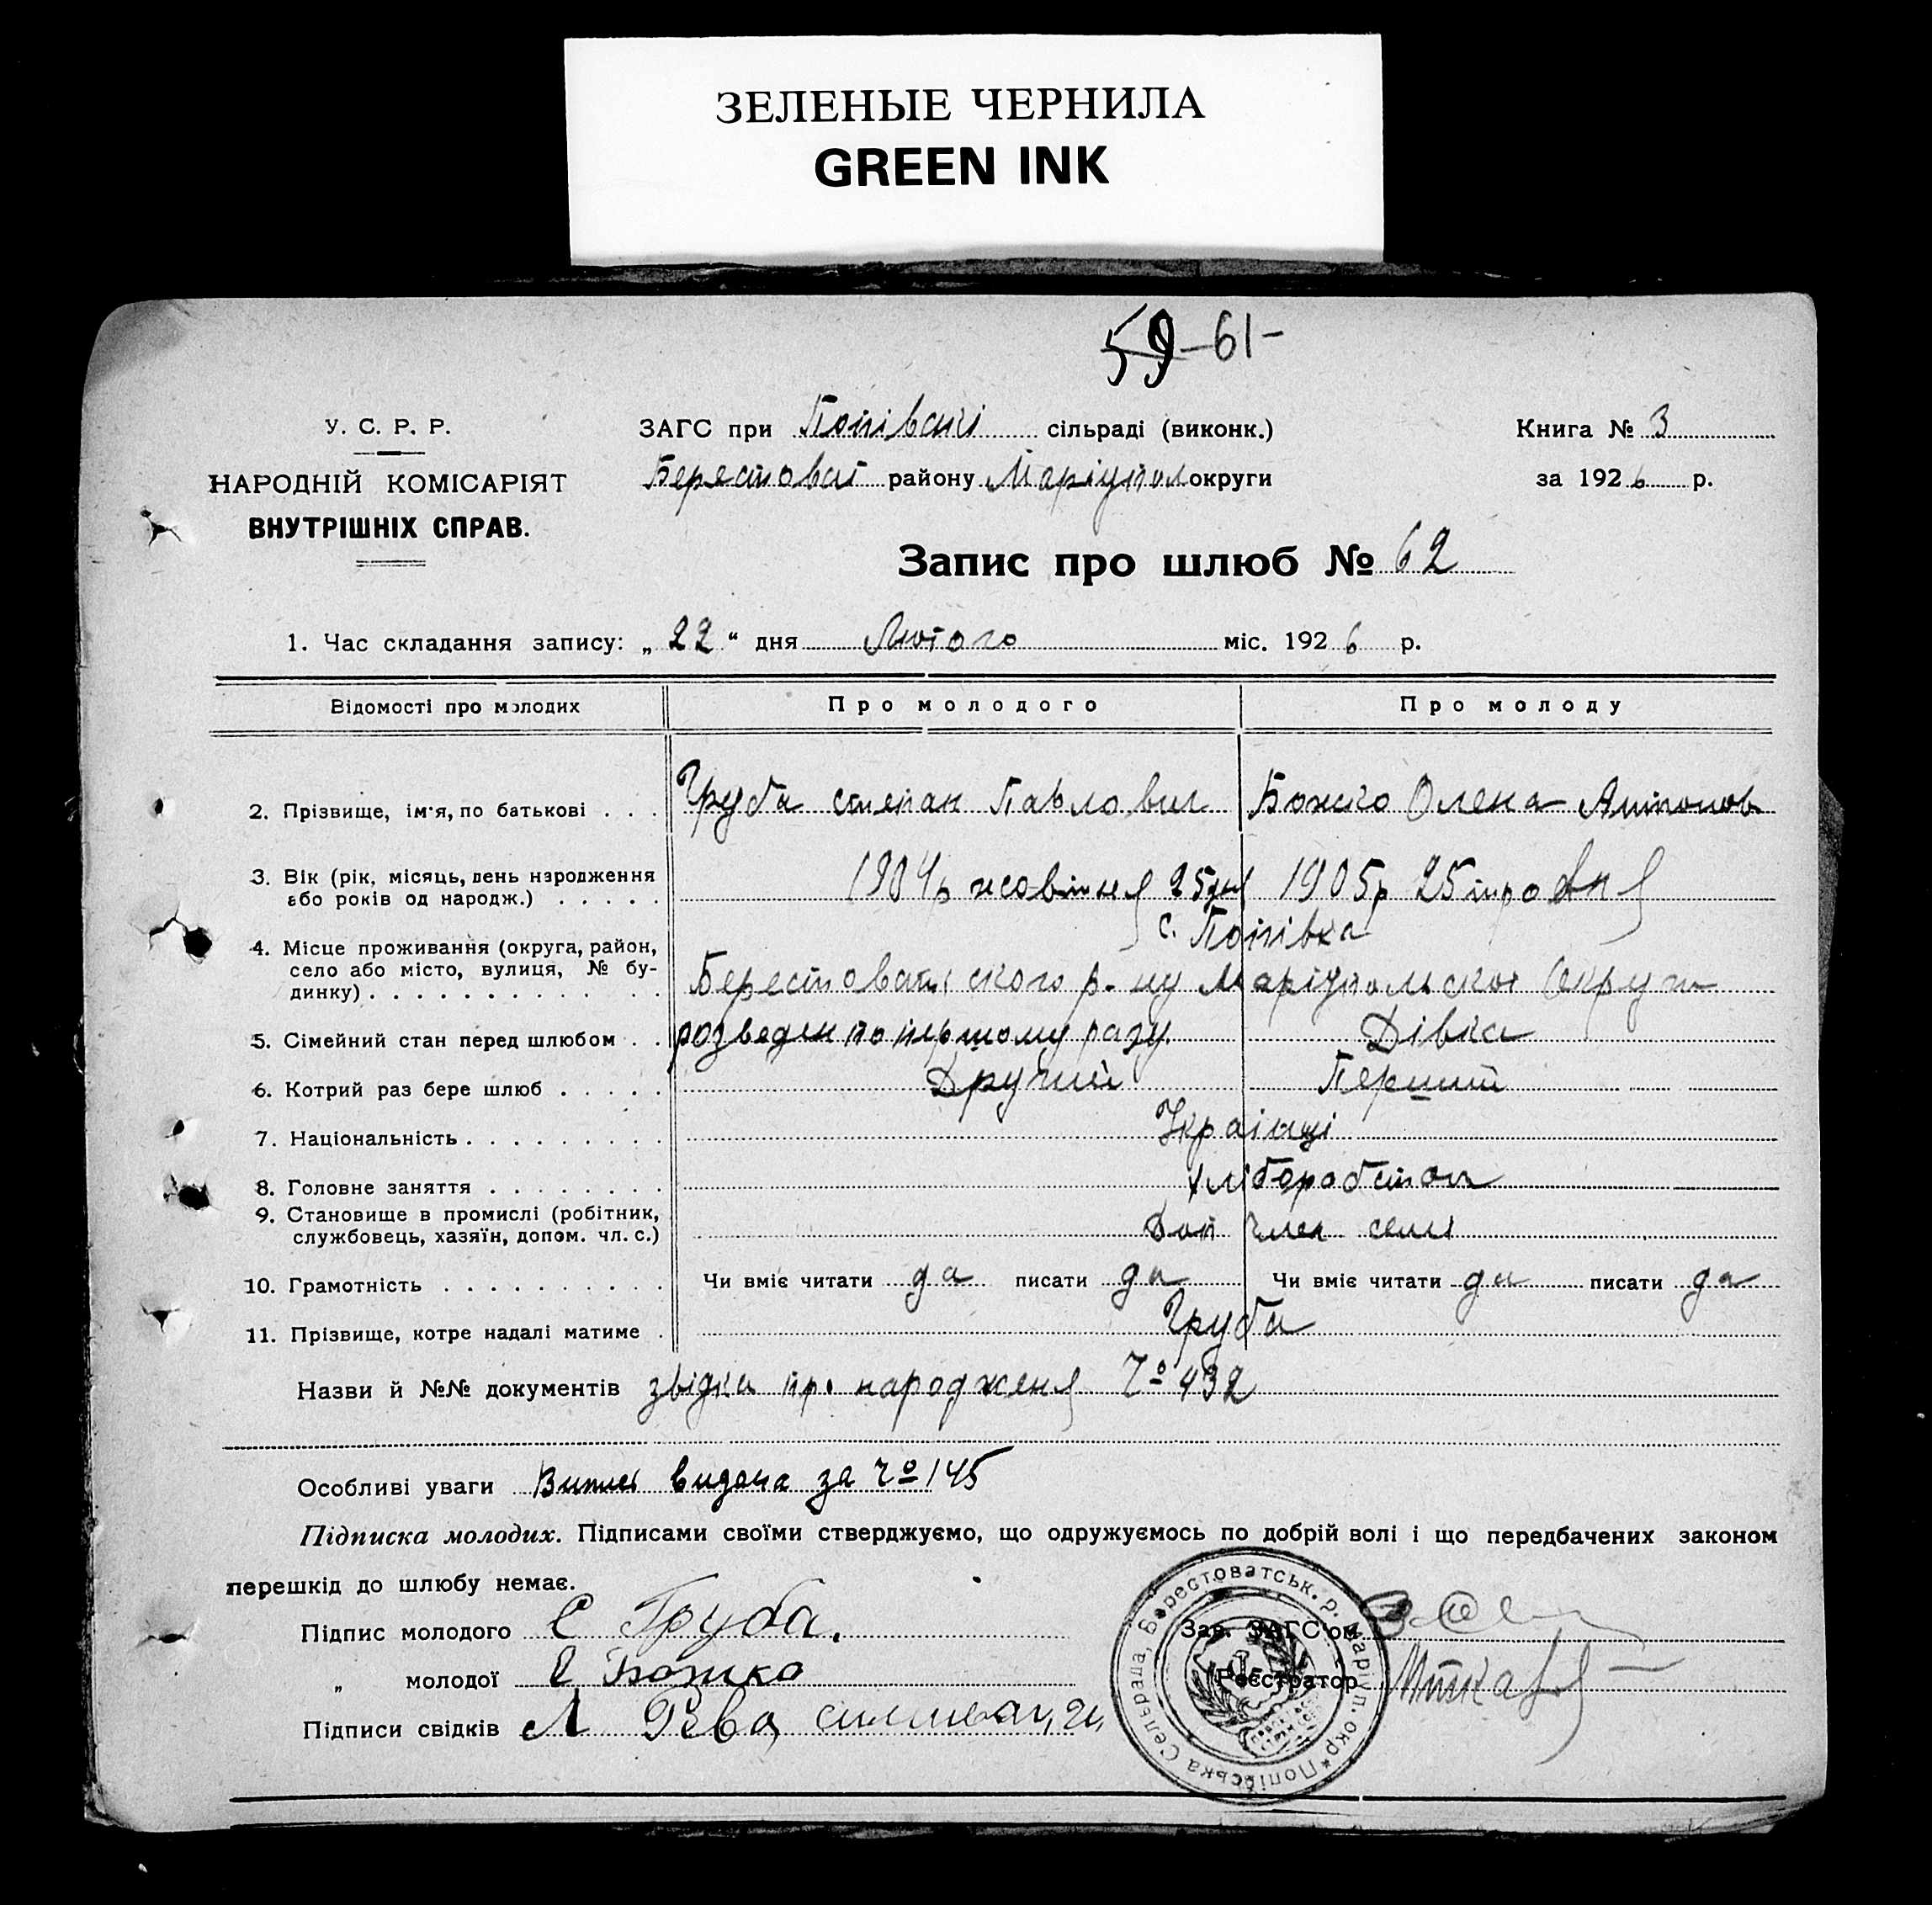 ЗЕЛЕНЫЕ ЧЕРНИЛА
GREEN INK
59-61-
У. С. Р. Р.
НАРОДНІЙ КОМІСАРІЯТ
ВНУТРІШНІХ СПРАВ.
ЗАГС при Попівскі сільраді (виконк.)
Берестоват району Маріупол округи
Книга № 3
за 1926 р.
Запис про шлюб № 62
1. Час складання запису: „22“ дня Лютого міс. 1926 р.
Відомості про молодих Про молодого Про молоду
2. Прізвище, ім'я, по батькові . . . Груба степан Павлович Божко Олена Антонов
3. Вік (рік, місяць, день народження 1904р жовтня 25дня 1905р 25
або років од народж.) . . . . .
с. Попівка
4. Місце проживання (округа, район,
село або місто, вулиця, № бу- Берестоватського р-ну Маріупольскої Округи
динку) . . . . . . . . . . . . .
5. Сімейний стан перед шлюбом . . розведен по першому разу. Дівка
6. Котрий раз бере шлюб . . . . . Другий Перший
7. Національність . . . . . . . . . Українці
8. Головне заняття . . . . . . . . хліборобство
9. Становище в промислі (робітник,
службовець, хазяїн, допом. чл. с.) Доп член семї
10. Грамотність . . . . . . . . . . Чи вміє читати да писати да Чи вміє читати да писати да
11. Прізвище, котре надалі матиме . Груба
Назви й №№ документів звідка про народженя Чо 432
Особливі уваги видана за чо 145
Підписка молодих. Підписами своїми стверджуємо, що одружуємось по добрій волі і що передбачених законом
перешкід до шлюбу немає.
Підпис молодого С Груба.
„ молодої О Божко
Підписи свідків Л Рева
Зав. ЗАГС'ом
Реєстратор
Попівська Сельрада, Берестоватськ. р. Маріуп. окр.